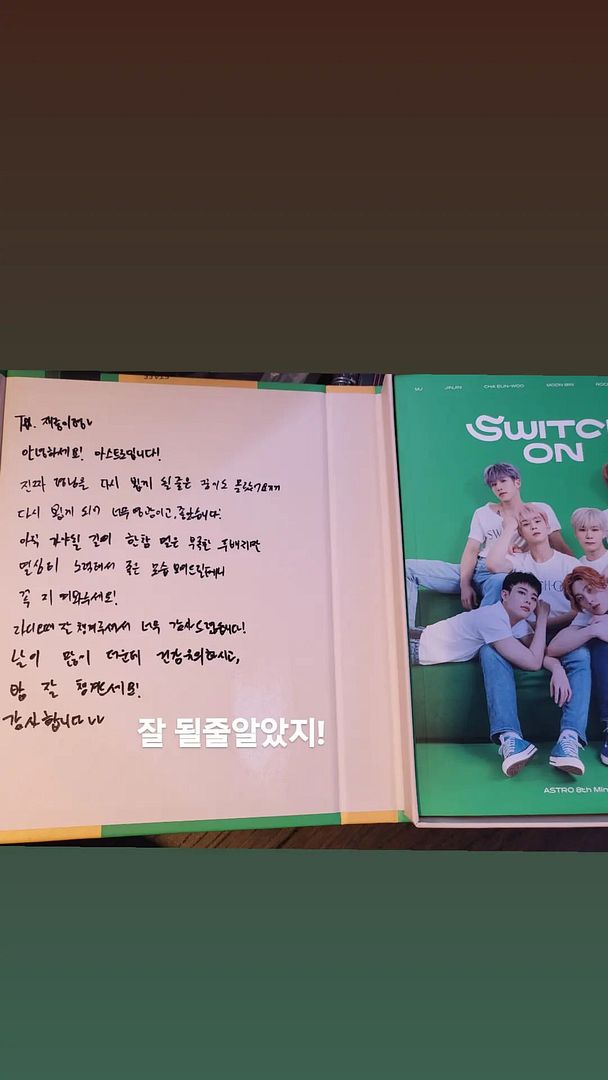 안녕하세요! 아스트로입니다!
진짜 형님을 다시 뵙게 될 줄은 꿈에도 몰랐는데
다시 뵙게 되어 너무 영광이고, 좋았습니다.
아직 가야될 길이 한참 먼 부족한 후배지만
열심히 노력해서 좋은 모습 보여드릴테니
꼭 지켜봐주세요!
라디오때 잘 챙겨주셔서 너무 감사드립니다!
날이 많이 더운데 건강 유의하시고,
밥 잘 챙겨드세요!
감사합니다
잘 될줄알았지!
MJ JINJIN CHA EUN-WOO MOON BIN
SWITCH
ON
ASTRO 8th Min